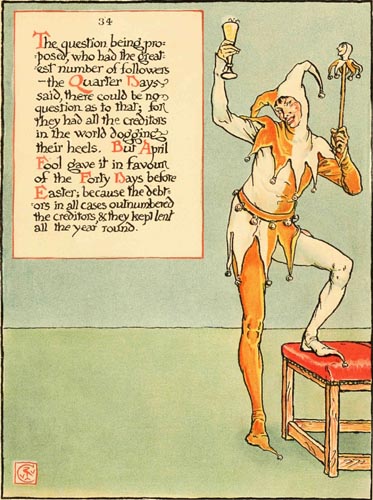 34
The question being pro-
posed, who had the great-
est number of followers
—the Quarter Days
said there could be no
question as to that; for
they had all the creditors
in the world dogging
their heels. But April
Fool gave it in favour
of the Forty Days before
Easter; because the debt-
ors in all cases outnumbered
the creditors, & they kept lent
all the year round.